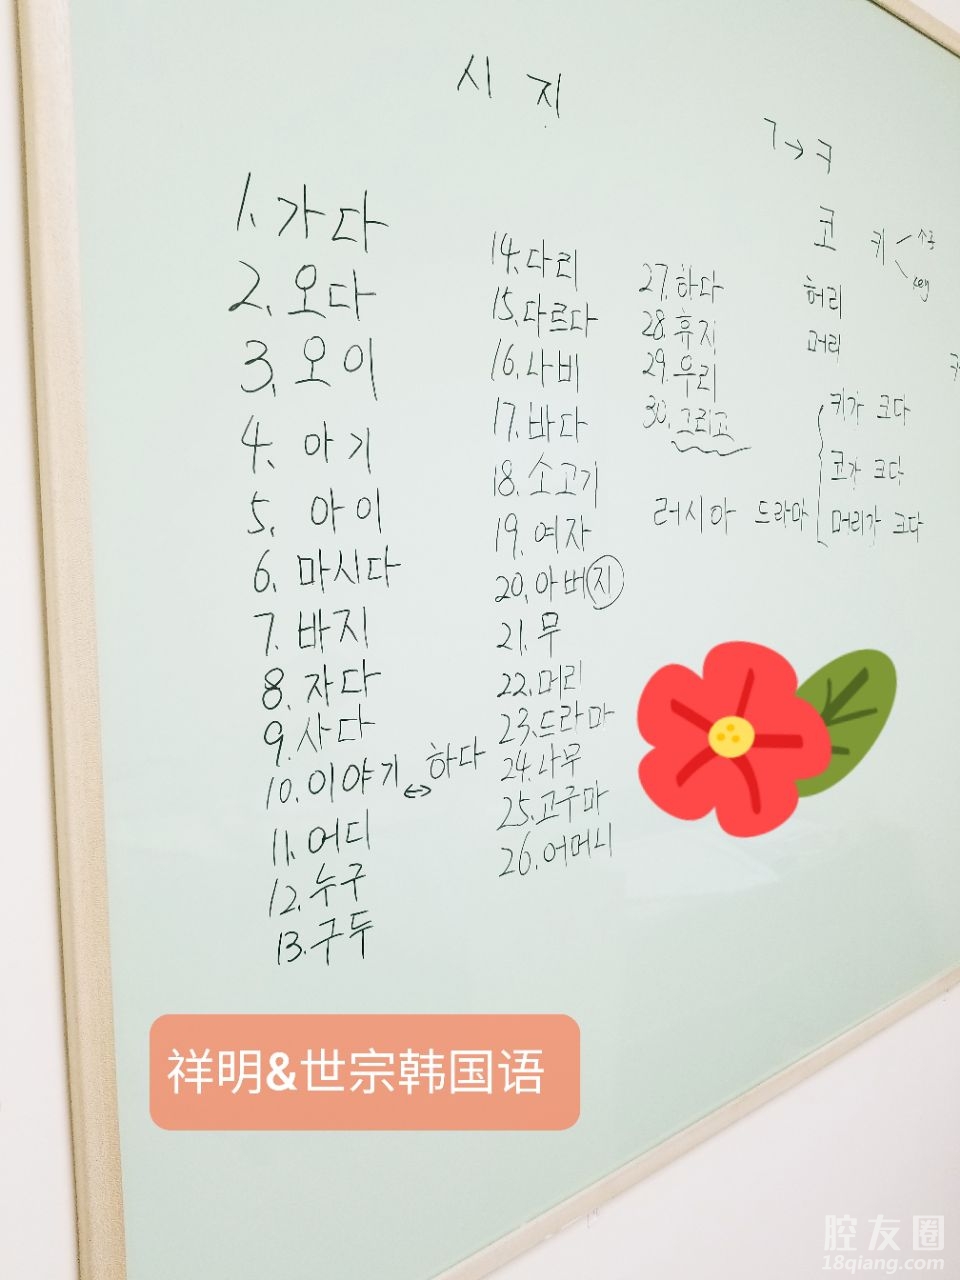 시 지
1. 가다
2. 오다
3. 오이
4. 아기
5. 아이
6. 마시다
7. 바지
8. 자다
9. 사다
10. 이야기 ↔ 하다
11. 어디
12. 누구
13. 구두
14. 다리
15. 다르다
16. 나비
17. 바다
18. 소고기
19. 여자
20. 아버지
21. 무
22. 머리
23. 드라마
24. 나무
25. 고구마
26. 어머니
27. 하다
28. 휴지
29. 우리
30. 그리고
러시아 드라마
ㄱ→ㅋ
코 키 个子
key
허리
머리
키가 크다
코가 크다
머리가 크다
祥明&世宗韩国语
腔友圈
18qiang.com